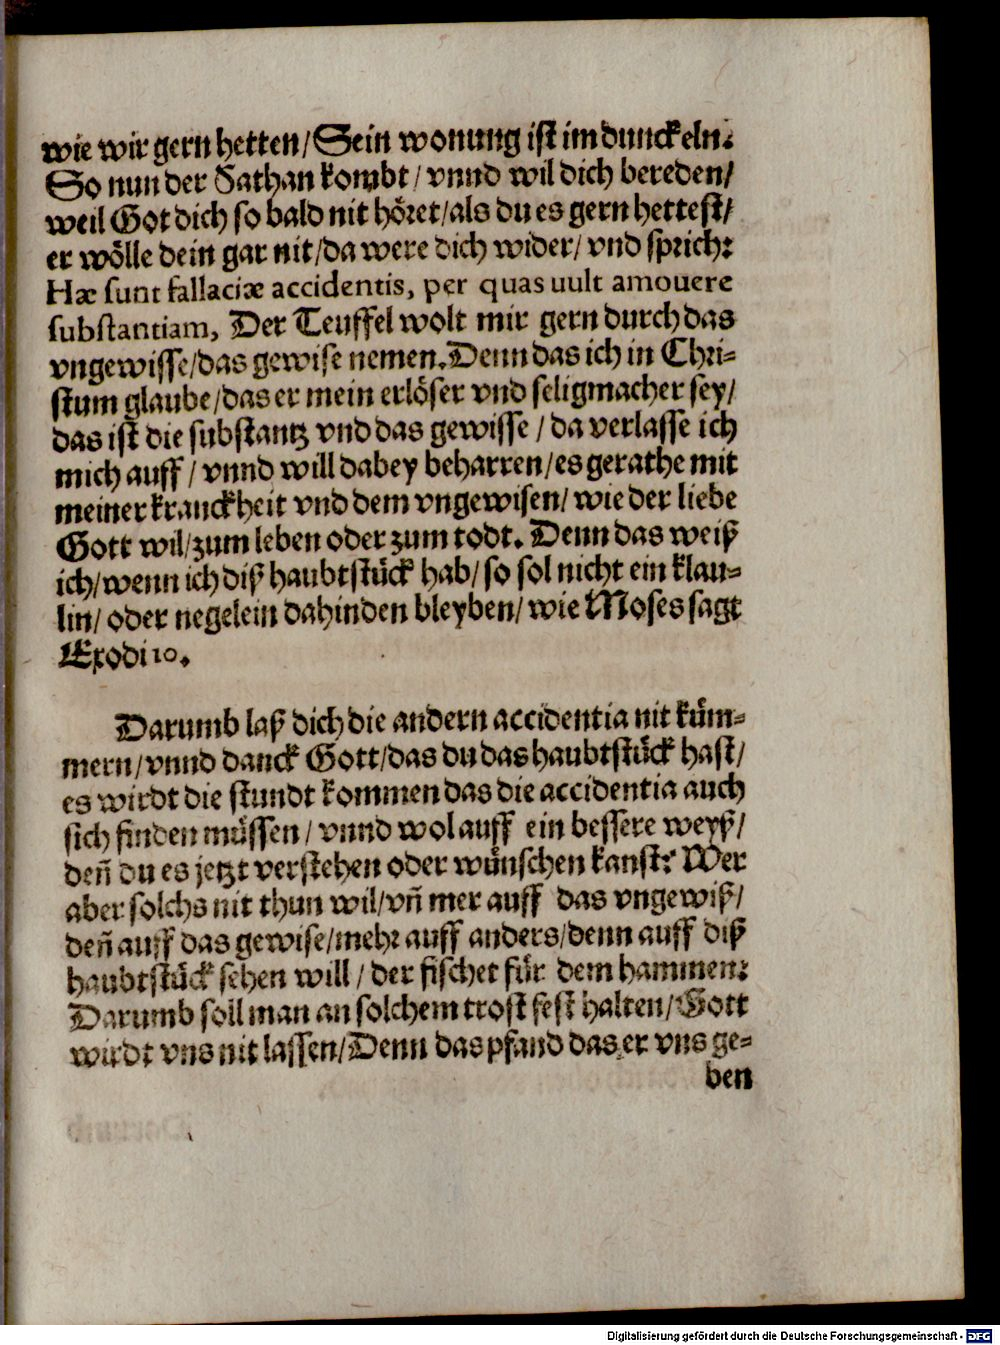 wie wir gern hetten/Sein wonung ist im dunckeln:
So nun der Sathan kombt/vnnd wil dich bereden/
weil Got dich so bald nit höret/als du es gern hettest/
er wölle dein gar nit/da were dich wider/vnd sprich:
Hæ sunt fallaciæ accidentis, per quas uult amouere
substantiam, Der Teuffel wolt mir gern durch das
vngewisse/das gewise nemen. Denn das ich in Chri-
stum glaube/das er mein erlöser vnd seligmacher sey/
das ist die substantz vnd das gewisse/da verlasse ich
mich auff/vnnd will dabey beharren/es gerathe mit
meiner kranckheit vnd dem vngewisen/wie der liebe
Gott wil/zum leben oder zum todt. Denn das weiß
ich/wenn ich diß haubtstück hab/so sol nicht ein klau-
lin/oder negelein dahinden bleyben/wie Moses sagt
Exodi 10.
Darumb laß dich die andern accidentia nit küm-
mern/vnnd danck Gott/das du das haubtstück hast/
es wirdt die stundt kommen das die accidentia auch
sich finden müssen/vnnd wol auff ein bessere weyß/
deñ du es jetzt verstehen oder wünschen kanst: Wer
aber solchs nit thun wil/vñ mer auff das vngewiß/
deñ auff das gewise/mehr auff anders/denn auff diß
haubtstück sehen will/der fischet für dem hammen:
Darumb soll man an solchem trost fest halten/Gott
wirdt vns nit lassen/Denn das pfand das er vns ge-
ben
Digitalisierung gefördert durch die Deutsche Forschungsgemeinschaft - DFG